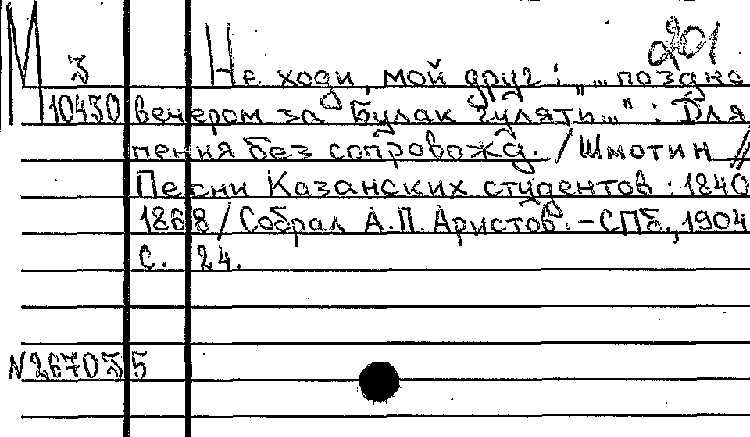 201
М З Не ходи, мой друг : „...поздно
10430 вечером за Булак гулять..." : Для
пения без сопровожд. / Шмотин //
Песни Казанских студентов : 1840
1868 / Собрал А.П. Аристов. - СПб., 1904
С. 24.
N267035